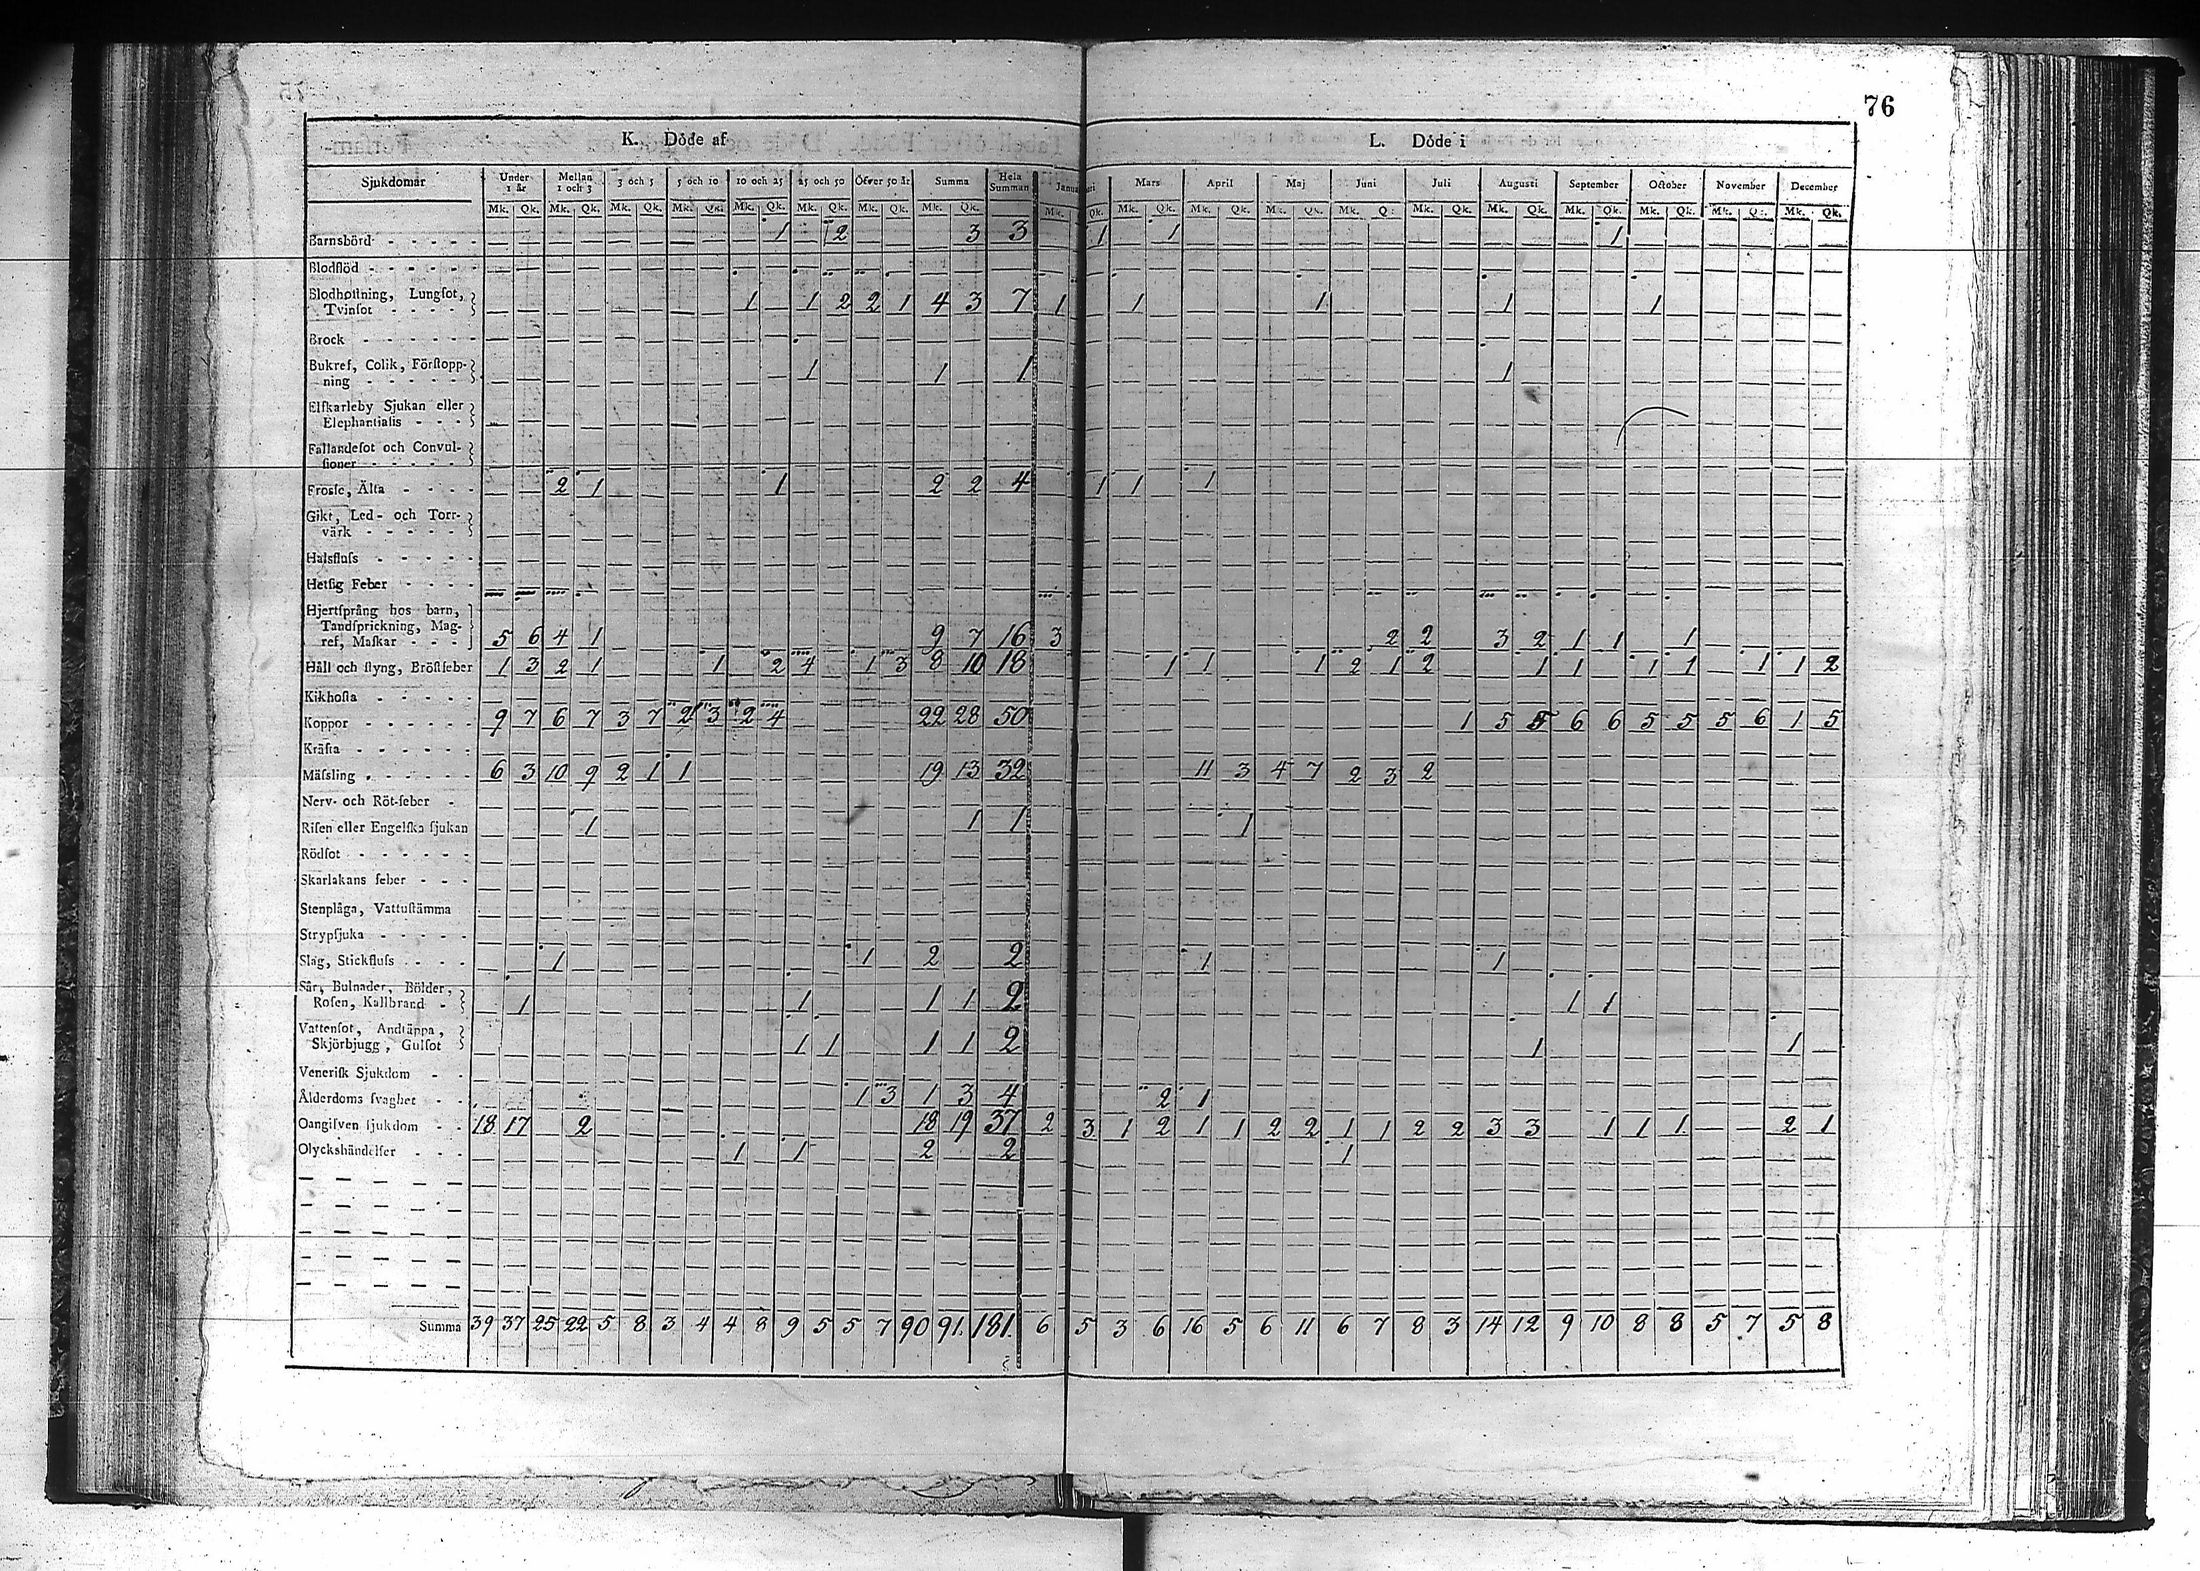 76
K. Döde af L. Döde i
Sjukdomar Under 1 år Mellan 1 och 3 3 och 5 5 och 10 10 och 25 25 och 50 Öfver 50 år Summa Hela Summan Januari Mars April Maj Juni Juli Augusti September October November December
Mk. Qk. Mk. Qk. Mk. Qk. Mk. Qk. Mk. Qk. Mk. Qk. Mk. Qk. Mk. Qk. Mk. Qk. Mk. Qk. Mk. Qk. Mk. Qk. Mk. Q: Mk. Qk. Mk. Qk. Mk. Qk. Mk. Qk. Mk. Q: Mk. Qk.
Barnsbörd - - - - - 1 2 3 3 1 1 1
Blodflöd - - - - - -
Blodhoſtning, Lungſot,
Tvinſot - - - - 1 1 2 2 1 4 3 7 1 1 1 1 1
Brock - - - - - - -
Bukref, Colik, Förſtopp-
ning - - - - - 1 1 1 1
Elfkarleby Sjukan eller
Elephantiaſis - - -
Fallandeſot och Convul-
ſioner - - - - -
Froſſe, Älta - - - - 2 1 1 2 2 4 1 1 1
Gikt, Led- och Torr-
värk - - - - -
Halsfluſs - - - - -
Hetſig Feber - - - -
Hjertſprång hos barn,
Tandſprickning, Mag-
ref, Maſkar - - - 5 6 4 1 9 7 16 3 2 2 3 2 1 1 1
Håll och ſtyng, Bröſtfeber 1 3 2 1 1 2 4 1 3 8 10 18 1 1 1 2 1 2 1 1 1 1 1 1 2
Kikhoſta - - - - -
Koppor - - - - - - 9 7 6 7 3 7 2 3 2 4 22 28 50 1 5 5 6 6 5 5 5 6 1 5
Kräfta - - - - - -
Mäſsling - - - - - - 6 3 10 9 2 1 1 19 13 32 11 3 4 7 2 3 2
Nerv- och Röt-feber -
Riſen eller Engelſka ſjukan 1 1 1 1
Rödſot - - - - - -
Skarlakans feber - - -
Stenplåga, Vattuſtämma
Strypſjuka - - - - -
Slag, Stickfluſs - - - - 1 1 2 2 1 1
Sår, Bulnader, Bölder,
Roſen, Kallbrand - 1 1 1 1 2 1 1
Vattenſot, Andtäppa,
Skjörbjugg, Gulſot 1 1 1 1 2 1 1
Veneriſk Sjukdom - -
Ålderdoms ſvaghet - - 1 3 1 3 4 2 1
Oangifven ſjukdom - - 18 17 2 18 19 37 2 3 1 2 1 1 2 2 1 1 2 2 3 3 1 1 1 2 1
Olyckshändelſer - - - 1 1 2 2 1
Summa 39 37 25 22 5 8 3 4 4 8 9 5 5 7 90 91. 181. 6 5 3 6 16 5 6 11 6 7 8 3 14 12 9 10 8 8 5 7 5 8